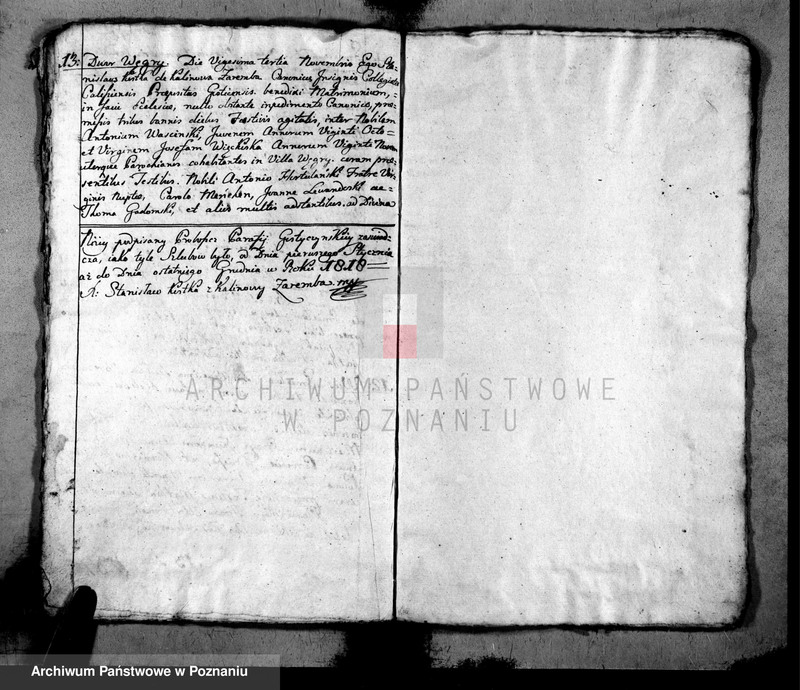 13. Dwor Węgry. Die Vigesima tertia Novembris Ego Sta-
nislaus Kirtka de Kalinowa Zaremba Canonicus Insignis Collegiatæ
Calissiensis Præpositus benedixi Matrimonium,
in facie Ecclesiæ, nullo obstante impedimento Canonico, præ-
missis tribus bannis diebus Festivis agitatis, inter Nobilem
Antonium Juvenem Annorum Viginti Octo
et Virginem Josefam Annorum Viginti
utrosque Parochianos cohabitantes in Villa Węgry. coram præ-
sentibus Testibus. Nobili Antonio Fratre Vir-
ginis Nuptæ, Carolo Joanne Lewandoski ac
Thoma Gadomski, et aliis multis adstantibus.
Niżey podpisany Proboszcz Parafij zaświad-
cza, iako tyle Szlubow było, od Dnia pierwszego Stycznia
aż do Dnia ostatniego Grudnia w Roku 1818
X: Stanisław Kirtka z Kalinowy Zaremba mp
ARCHIWUM PAŃSTWOWE
W POZNANIU
Archiwum Państwowe w Poznaniu